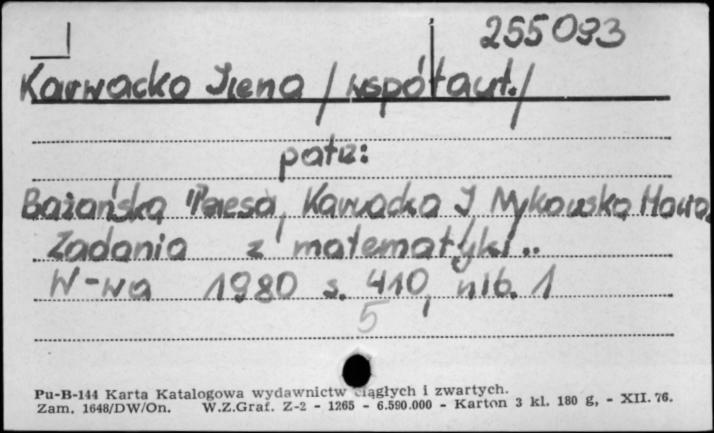 255093
Karwacka Irena /współaut./
patrz:
Bażańska Teresa, Karwacka I Nykowska Maria
Zadania z matematyki..
W-wa 1980 s. 410, nlb. 1
5
Pu-B-144 Karta Katalogowa wydawnictw ciągłych i zwartych.
Zam. 1648/DW/On. W.Z.Graf. Z-2 - 1265 - 6.590.000 - Karton 3 kl. 180 g, - XII. 76.